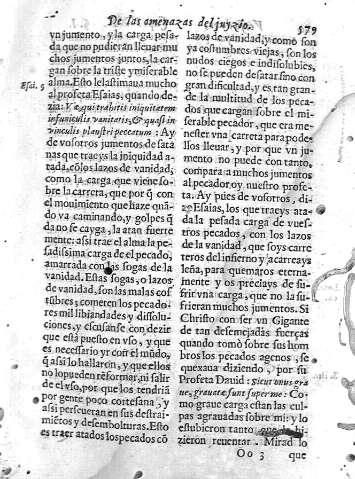 De las amenazas del juyzio. 579
vn jumento, y la carga pesa-
da que no pudieran lleuar mu
chos jumentos juntos, la car-
gan sobre la triste y miserable
alma. Esto le lastimaua mucho
Esai. 5 al profeta Esaias, quando de-
zia: Væ qui trahitis iniquitatem
in funiculis vanitatis, & quasi in
vinculis plaustri peccatum: Ay
de vosotros jumentos de sata-
nas que traeys la iniquidad a-
tada, cõ los lazos de vanidad;
como la carga que viene so-
bre la carreta, que por q̃ con
el mouimiento que haze quã-
do va caminando, y golpes q̃
da no se cayga, la atan fuerte
mente: assi trae el alma la pe-
sadissima carga del pecado,
amarrada con las sogas de la
vanidad. Estas sogas, o lazos
de vanidad, son las malas cos
tũbres; cometen los pecado-
res mil libiandades y dissolu-
ciones, y escusanse con dezir
que està puesto en vso, y que
es necessario yr con el mũdo,
q̃ assi lo hallaron, y que ellos
no lo pueden reformar, ni salir
de el vso, por que los tendriã
por gente poco cortesana, y
assi perseueran en sus destrai-
miẽtos y desembolturas. Esto
es traer atados los pecados cõ
lazos de vanidad, y como son
ya costumbres viejas, son los
nudos ciegos e indisolubles,
no se pueden desatar sino con
gran dificultad, y es tan gran-
de la multitud de los peca-
dos que cargan sobre el mi-
serable pecador, que era me-
nester vna carreta para pode-
llos lleuar, y por que vn ju-
mento no puede con tanto,
compara a muchos jumentos
al pecador oy nuestro profe-
ta. Ay pues de vosotros, di-
ze Esaias, los que traeys ata-
da la pesada carga de vues-
tros pecados, con los lazos
de la vanidad, que soys carre
teros del infierno y acarreays
leña, para quemaros eterna-
mente y os preciays de suf-
frir vna carga, que no la su-
frieran muchos jumentos. Si
Christo con ser vn Gigante
de tan desemejadas fuerças
quando tomò sobre sus hom
bros los pecados agenos, se
quexaua diziendo, por su
Profeta Dauid: Sicut onus gra
ue, grauatæ sunt super me: Co-
mo graue carga estan las cul-
pas agrauadas sobre mi: y lo
estubieron tanto que le hi-
zieron reuentar. Mirad lo
Oo 3 que